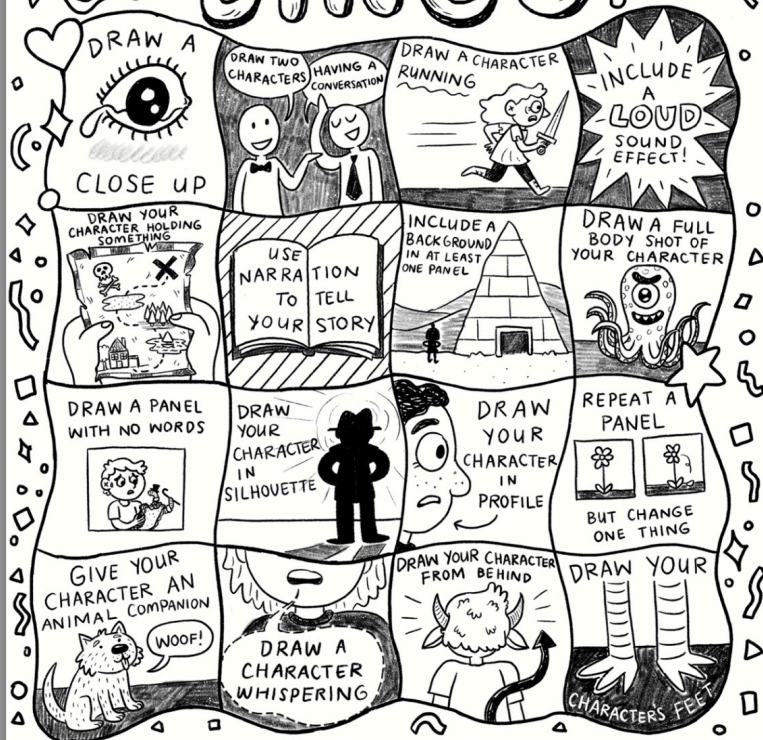 DRAW A
CLOSE UP
DRAW TWO
CHARACTERS
HAVING A
CONVERSATION
DRAW A CHARACTER
RUNNING
INCLUDE
A
LOUD
SOUND
EFFECT!
DRAW YOUR
CHARACTER HOLDING
SOMETHING
USE
NARRATION
TO TELL
YOUR STORY
INCLUDE A
BACKGROUND
IN AT LEAST
ONE PANEL
DRAW A FULL
BODY SHOT OF
YOUR CHARACTER
DRAW A PANEL
WITH NO WORDS
DRAW
YOUR
CHARACTER
IN
SILHOUETTE
DRAW
YOUR
CHARACTER
IN
PROFILE
REPEAT A
PANEL
BUT CHANGE
ONE THING
GIVE YOUR
CHARACTER AN
ANIMAL COMPANION
WOOF!
DRAW A
CHARACTER
WHISPERING
DRAW YOUR CHARACTER
FROM BEHIND
DRAW YOUR
CHARACTER'S FEET